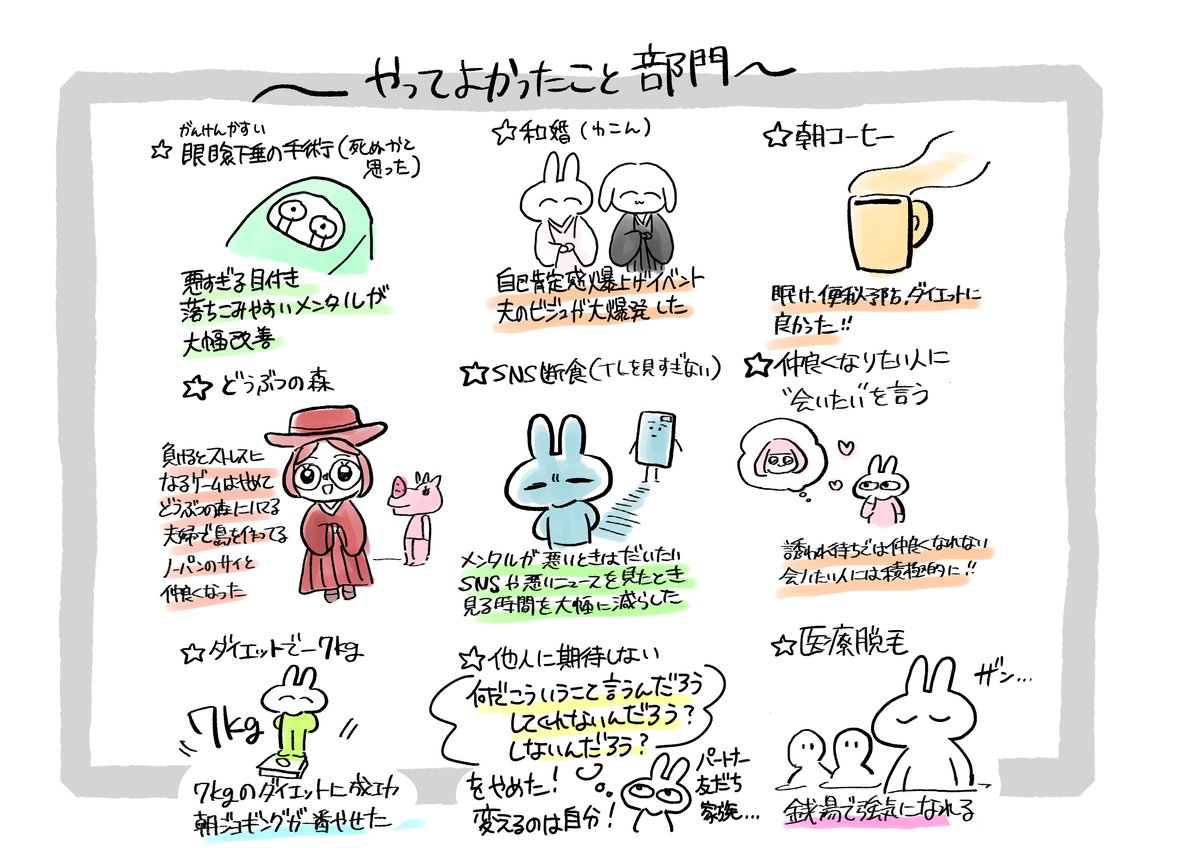 〜やってよかったこと部門〜
がんけんかすい
☆眼瞼下垂の手術(死ぬかと
思った)
悪すぎる目付き
落ちこみやすいメンタルが
大幅改善
☆和婚(わこん)
自己肯定感爆上げイベント
夫のビジュが大爆発した
☆朝コーヒー
眠け、便秘予防、ダイエットに
良かった!!
☆どうぶつの森
負けるとストレスに
なるゲームはやめて
どうぶつの森にハマる
夫婦で島を作ってる
ノーパンのサイと
仲良くなった
☆SNS断食(TLを見すぎない)
メンタルが悪いときはだいたい
SNSや悪いニュースを見たとき
見る時間を大幅に減らした
☆仲良くなりたい人に
"会いたい"を言う
誘われ待ちでは仲良くなれない
会いたい人には積極的に!!
☆ダイエットで−7kg
7kg
7kgのダイエットに成功
朝ジョギングが一番やせた
☆他人に期待しない
何だこういうこと言うんだろう
してくれないんだろう?
しないんだろう?
をやめた!
変えるのは自分!
パートナー
友だち
家族...
☆医療脱毛
ザン...
銭湯で強気になれる